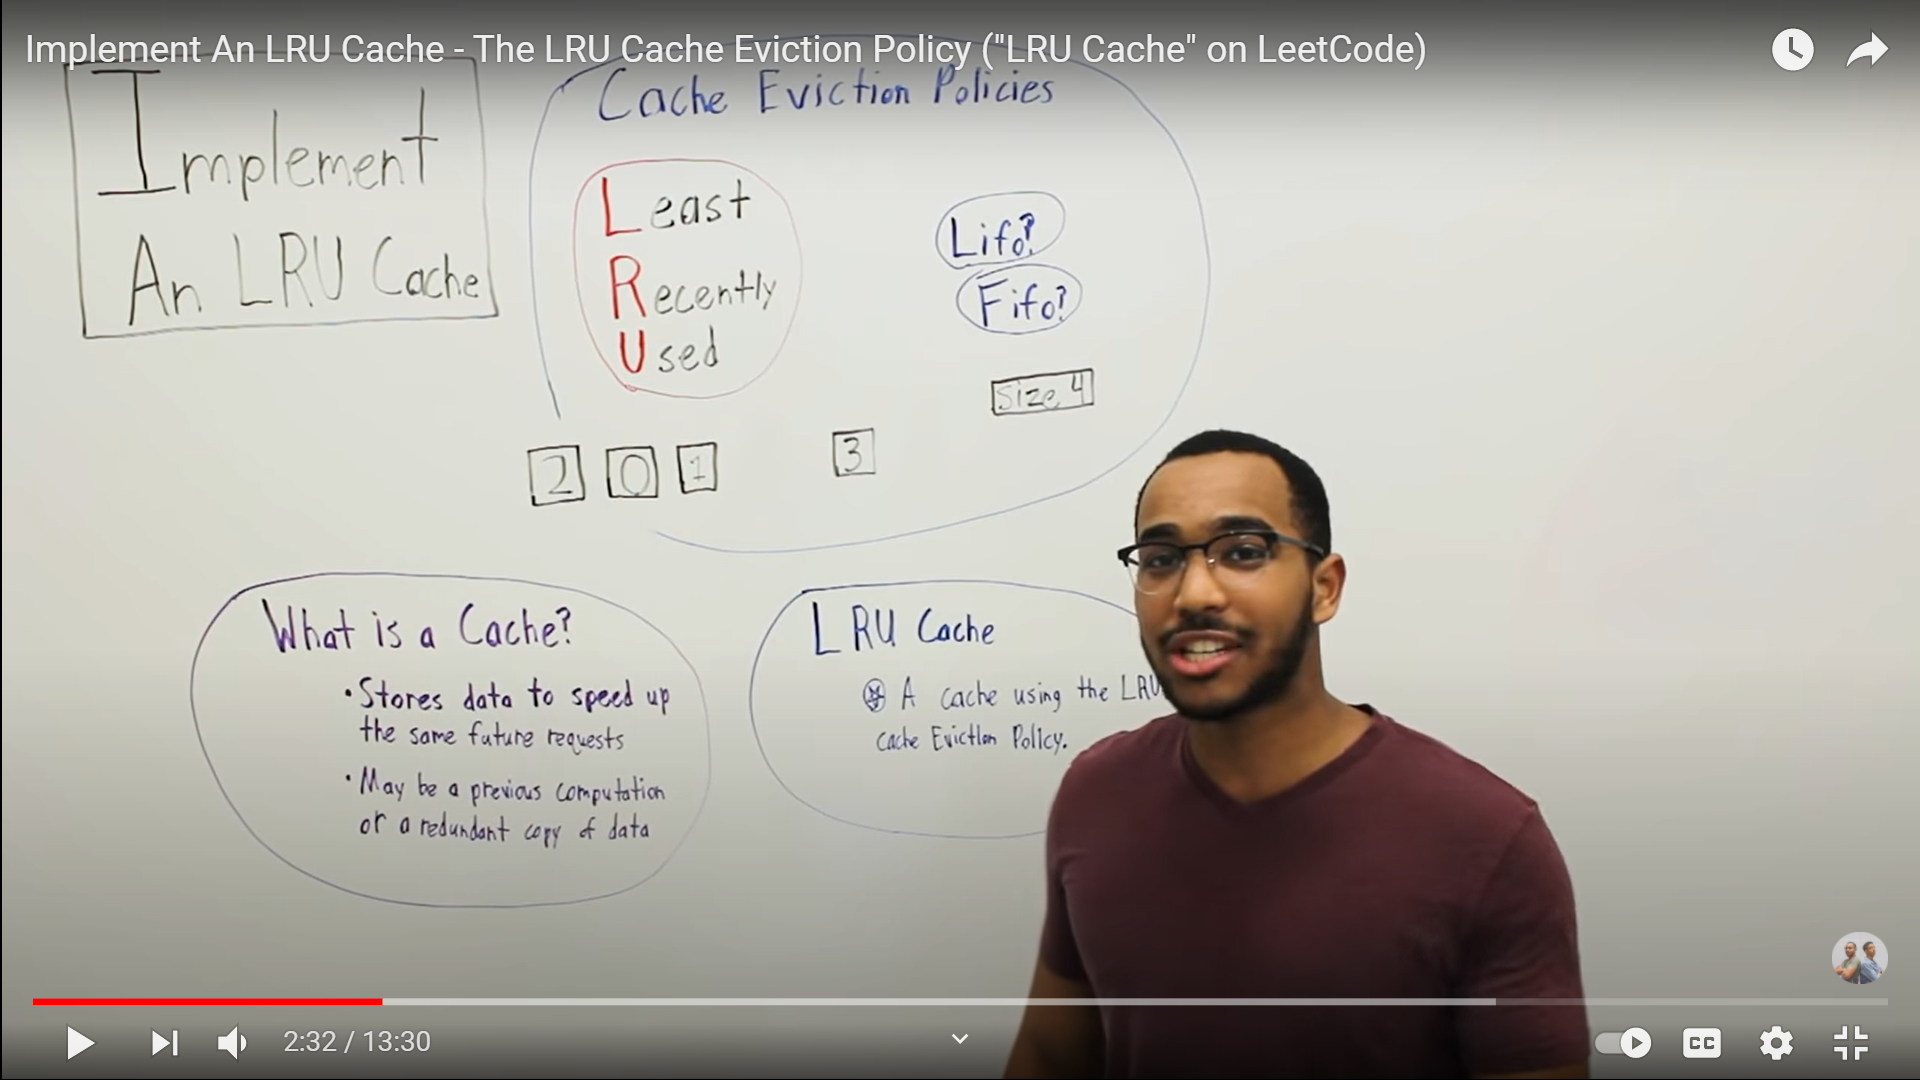 Implement An LRU Cache - The LRU Cache Eviction Policy ("LRU Cache" on LeetCode)
Implement
An LRU Cache
Cache Eviction Policies
Least
Recently
Used
Lifo?
Fifo?
Size 4
2 0 1 3
What is a Cache?
• Stores data to speed up
the same future requests
• May be a previous computation
or a redundant copy of data
LRU Cache
A cache using the LRU
cache Eviction Policy.
2:32 / 13:30
CC